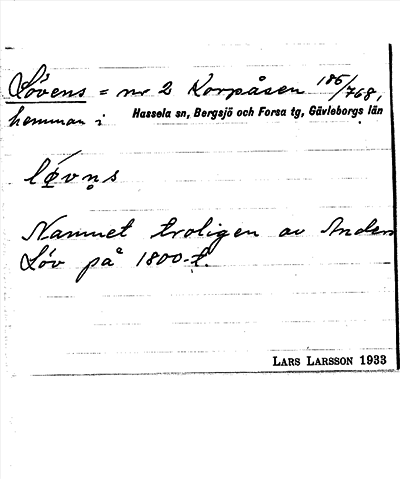 Lövens = nr 2 Korpåsen 186/768,
hemman i Hassela sn, Bergsjö och Forsa tg, Gävleborgs län
Namnet troligen av Anders
Löv på 1800-t.
LARS LARSSON 1933